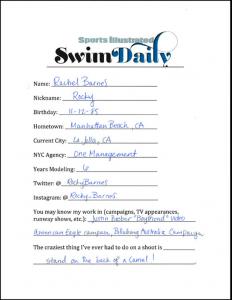 Sports Illustrated
SwimDaily
Name: Rachel Barnes
Nickname: Rocky
Birthday: 11-12-85
Hometown: Manhattan Beach, CA
Current City: La Jolla, CA
NYC Agency: One Management
Years Modeling: 6
Twitter: @ RockyBarnes
Instagram: @ Rocky_Barnes
You may know my work in (campaigns, TV appearances,
runway shows, etc.): Justin Bieber "Boyfriend" Video
American Eagle campaign, Billabong Australia Campaign
The craziest thing I've ever had to do on a shoot is
stand on the back of a camel!